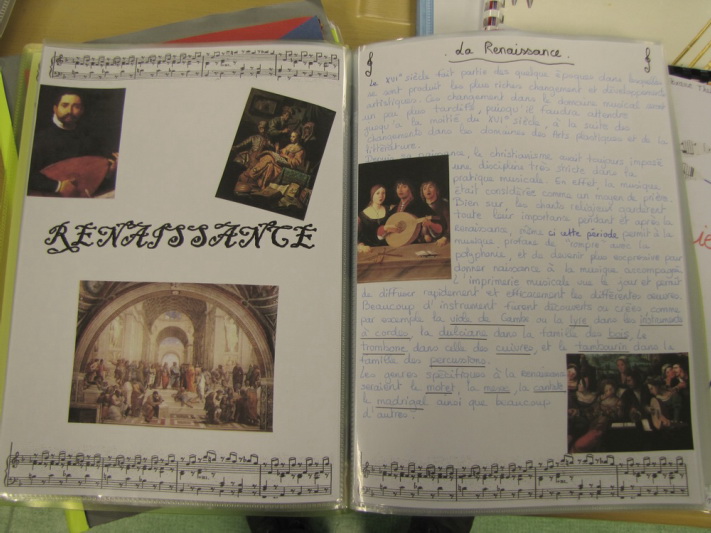 RENAISSANCE
. La Renaissance.
Le XVIe siècle fait partie des quelque époques dans lesquelles
se sont produit les plus riches changement et développements
artistiques. Ces changement dans le domaine musical sont
un peu plus tardifs, puisqu'il faudra attendre
jusqu'à la moitié du XVIe siècle, à la suite des
changements dans les domaines des Arts plastiques et de la
littérature.
Depuis sa naissance, le christianisme avait toujours imposé
une discipline très stricte dans la
pratique musicale. En effet, la musique
était considérée comme un moyen de prière.
Bien sur, les chants religieux gardèrent
toute leur importance pendant et après la
Renaissance, même si cette période permit à la
musique profane de "rompre" avec la
polyphonie, et de devenir plus expressive pour
donner naissance à la musique accompagné
L'imprimerie musicale vue le jour et permit
de diffuser rapidement et efficacement les différentes oeuvres.
Beaucoup d'instrument furent découverts ou créés, comme
par exemple la viole de Gambe ou la lyre dans les instruments
à cordes, la dulciane dans la famille des bois, le
trombone dans celle des cuivres, et le tambourin dans la
famille des percussions.
Les genres spécifiques à la Renaissance
seraient le motet, la messe, la cantate,
le madrigal ainsi que beaucoup
d'autres.